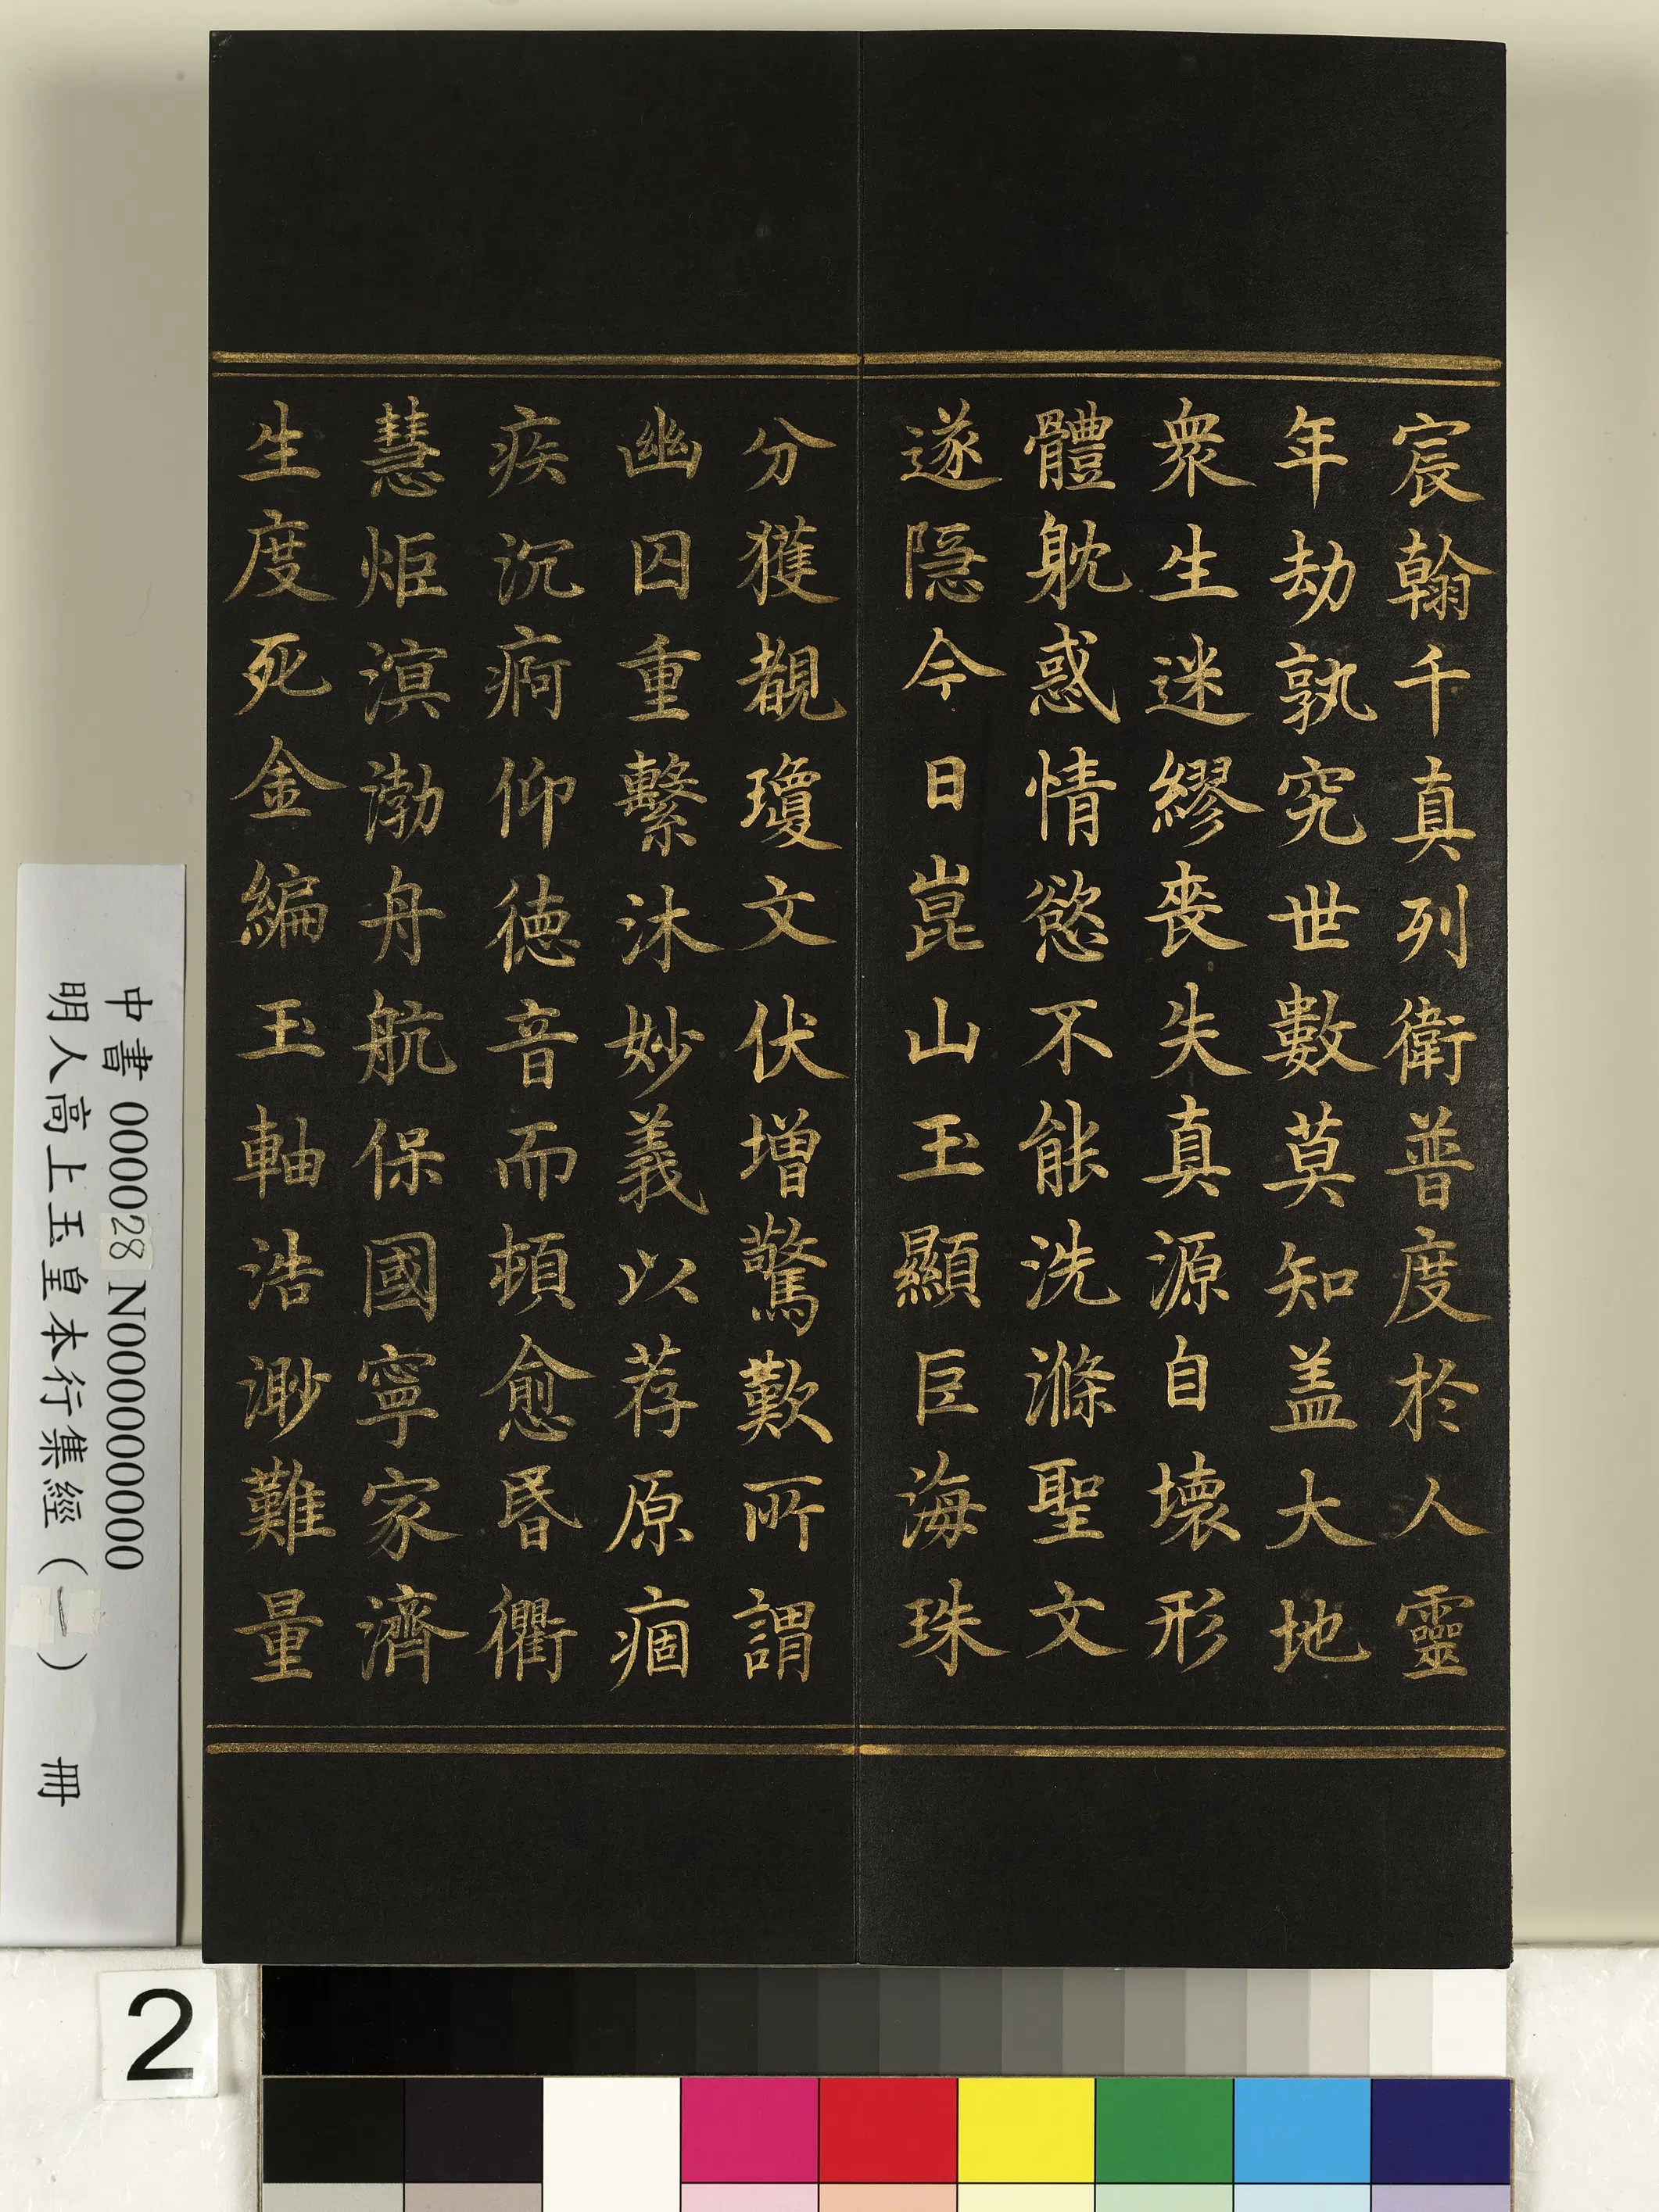 宸翰千真列衛普度於人靈
年劫孰究世數莫知盖大地
衆生迷繆喪失真源自壞形
體躭惑情慾不能洗滌聖文
遂隠今日崑山玉顯巨海珠
分獲覩瓊文伏增驚歎所謂
幽囚重繫沐妙義以荐原痼
疾沉痾仰徳音而頓愈昬衢
慧炬溟渤舟航保國寧家濟
生度死金編玉軸浩渺難量
中書 000028 N000000000
明人高上玉皇本行集經（一） 冊
2